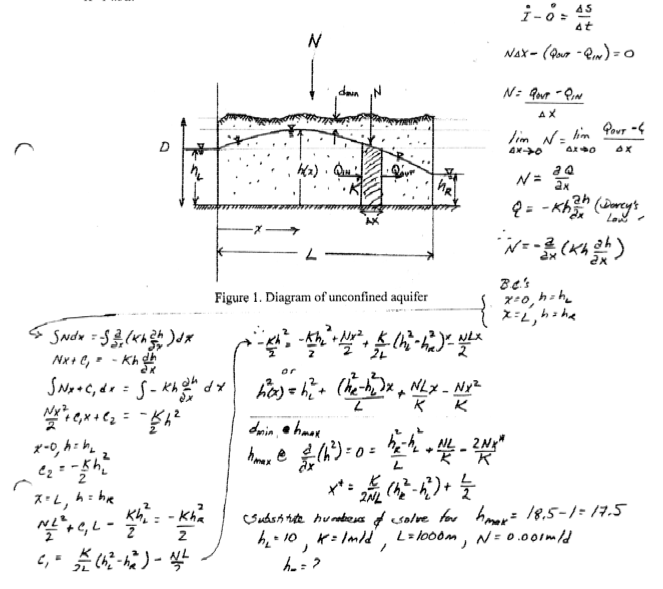 İ - O̊ = ΔS/Δt
NΔx - (Q_OUT - Q_IN) = 0
N = (Q_OUT - Q_IN)/Δx
lim Δx→0 N = lim Δx→0 (Q_OUT - Q)/Δx
N = ∂Q/∂x
Q = -Kh ∂h/∂x (Darcy's Law)
∴ N = -∂/∂x (Kh ∂h/∂x)
B.C.'s
x=0, h=h_L
x=L, h=h_R
N
d_min
N
D
h_L
h(x)
Q_IN
K
Q_OUT
h_R
Δx
x
L
Figure 1. Diagram of unconfined aquifer
∫Ndx = ∫∂/∂x (Kh ∂h/∂x) dx
Nx + C₁ = -Kh dh/dx
∫Nx + C₁ dx = ∫-Kh ∂h/∂x dx
Nx²/2 + C₁x + C₂ = -K/2 h²
x=0, h=h_L
C₂ = -Kh_L²/2
x=L, h=h_R
NL²/2 + C₁L - Kh_L²/2 = -Kh_R²/2
C₁ = K/2L (h_L² - h_R²) - NL/2
∴ -Kh²/2 = -Kh_L²/2 + Nx²/2 + K/2L (h_L² - h_R²)x - NLx/2
or
h²(x) = h_L² + (h_R² - h_L²)x/L + NLx/K - Nx²/K
d_min @ h_max
h_max @ ∂/∂x (h²) = 0 = (h_R² - h_L²)/L + NL/K - 2Nx*/K
x* = K/2NL (h_R² - h_L²) + L/2
Substitute numbers & solve for h_max = 18.5 - 1 = 17.5
h_L = 10, K = 1m/d, L = 1000m, N = 0.001m/d
= ?